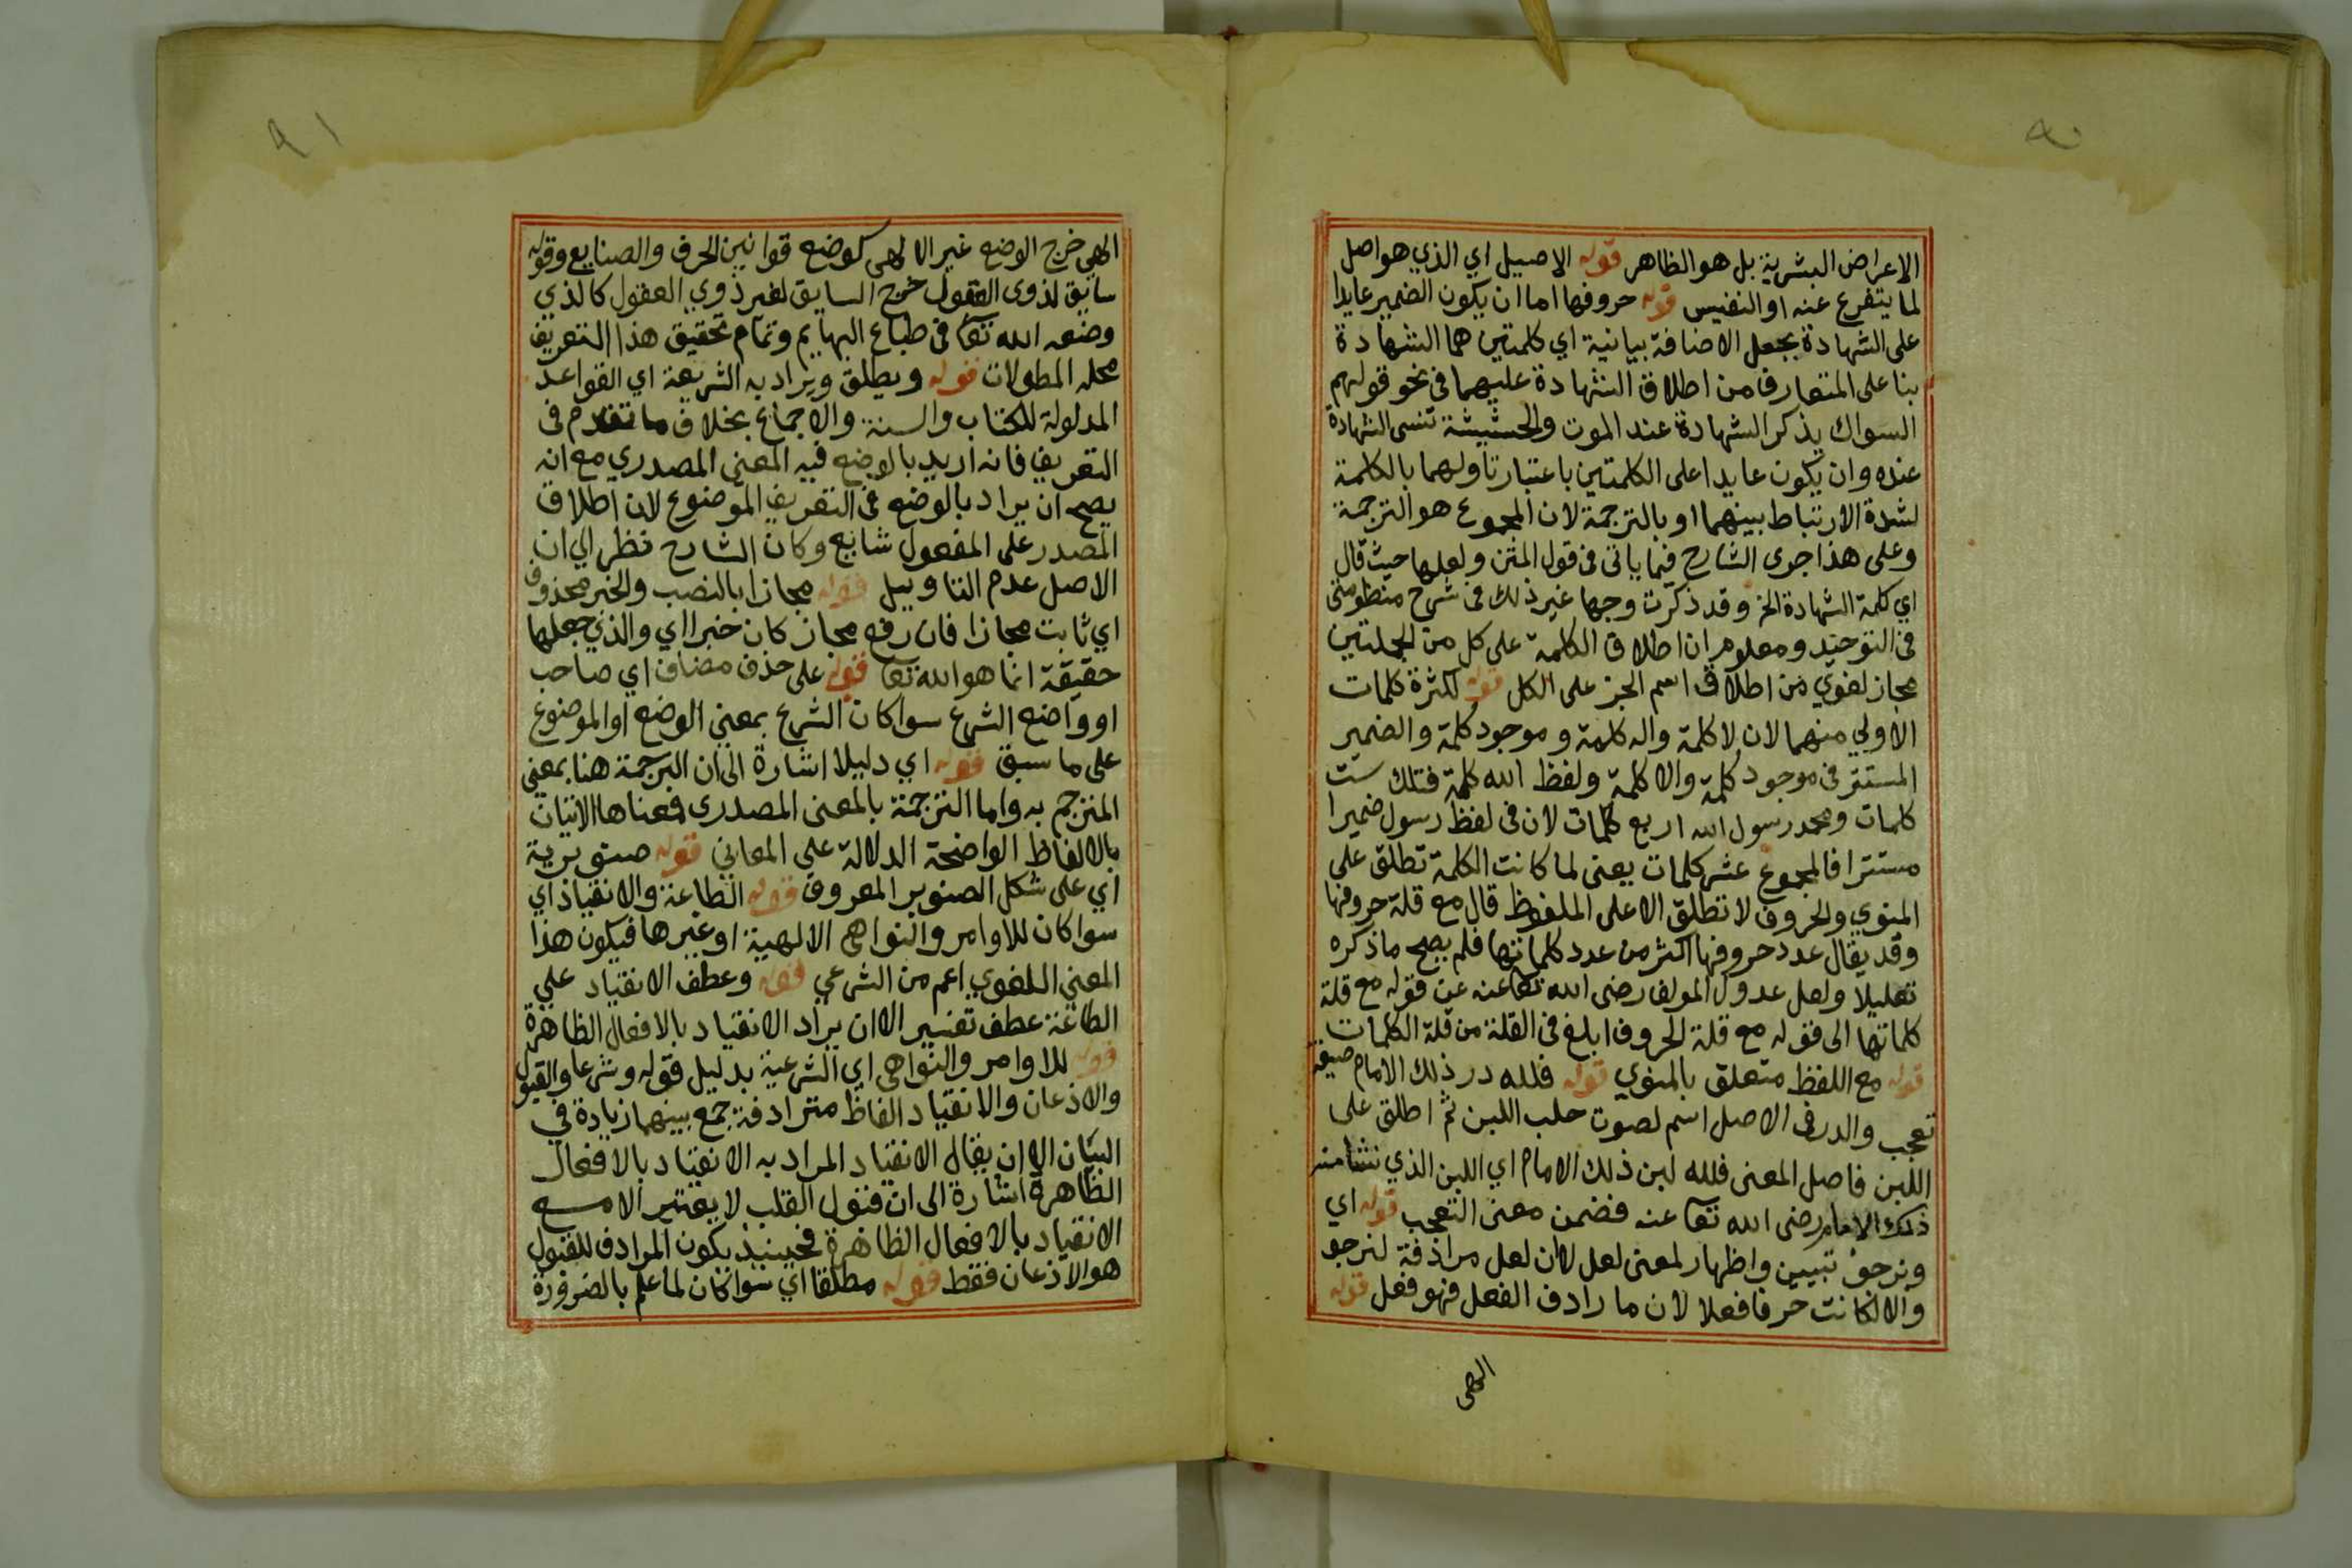 ٩٠
الاعراض البشرية بل هو الظاهر قوله الاصيل اي الذي هو اصل
لما يتفرع عنه او النفيس قوله حروفها اما ان يكون الضمير عايدا
على الشهادة بجعل الاضافة بيانية اي كلمتين هما الشهادة
بنا على المتعارف من اطلاق الشهادة عليهما في نحو قولهم
السواك يذكر الشهادة عند الموت والحشيشة تنسى الشهادة
عنده وان يكون عايدا على الكلمتين باعتبار تاولهما بالكلمة
لشدة الارتباط بينهما او بالترجمة لان المجموع هو الترجمة
وعلى هذا جرى الشارح فيما ياتي في قول المتن ولعلها حيث قال
اي كلمة الشهادة الخ وقد ذكرت وجها غير ذلك في شرح منظومتي
في التوحيد ومعلوم ان اطلاق الكلمة على كل من الجملتين
مجاز لغوي من اطلاق اسم الجز على الكل قوله لكثرة كلمات
الاولي منهما لان لا كلمة واله كلمة وموجود كلمة والضمير
المستتر في موجود كلمة والا كلمة ولفظ الله كلمة فتلك ست
كلمات ومحمد رسول الله اربع كلمات لان في لفظ رسول ضميرا
مستترا فالمجموع عشر كلمات يعني لما كانت الكلمة تطلق على
المنوي والحروف لا تطلق الا على الملفوظ قال مع قلة حروفها
وقد يقال عدد حروفها اكثر من عدد كلماتها فلم يصح ما ذكره
تعليلا ولعل عدول المولف رضى الله تعا عنه عن قوله مع قلة
كلماتها الى قوله مع قلة الحروف ابلغ في القلة من قلة الكلمات
قوله مع اللفظ متعلق بالمنوي قوله فلله در ذلك الامام صيغة
تعجب والدر في الاصل اسم لصوت حلب اللبن ثم اطلق على
اللبن فاصل المعنى فلله لبن ذلك الامام اي اللبن الذي نشا منه
ذلك الامام رضى الله تعا عنه فضمن معنى التعجب قوله اي
ونرجو تبيين واظهار لمعنى لعل لان لعل مرادفة لنرجو
والا لكانت حرفا فعلا لان ما رادف الفعل فهو فعل قوله
الهى
٩١
الهي خرج الوضع غير الالهى كوضع قوانين الحرف والصنايع وقوله
سايق لذوى العقول خرج السايق لغير ذوي العقول كالذي
وضعه الله تعا في طباع البهايم وتمام تحقيق هذا التعريف
محله المطولات قوله ويطلق ويراد به الشريعة اي القواعد
المدلولة للكتاب والسنة والاجماع بخلاف ما تقدم في
التعريف فانه اريد بالوضع فيه المعنى المصدري مع انه
يصح ان يراد بالوضع في التعريف الموضوع لان اطلاق
المصدر على المفعول شايع وكان الشارح نظر الي ان
الاصل عدم التاويل قوله مجازا بالنصب والخبر محذوف
اي ثابت مجازا فان رفع مجاز كان خبرا اي والذي جعلها
حقيقة انما هو الله تعا قوله على حذف مضاف اي صاحب
او واضع الشرع سوا كان الشرع بمعني الوضع او الموضوع
على ما سبق قوله اي دليلا اشارة الى ان الترجمة هنا بمعني
المترجم به واما الترجمة بالمعنى المصدرى فمعناها الاتيان
بالالفاظ الواضحة الدلالة على المعاني قوله صنوبرية
اي على شكل الصنوبر المعروف قوله الطاعة والانقياد اي
سوا كان للاوامر والنواهى الالهية او غيرها فيكون هذا
المعني اللغوي اعم من الشرعي قوله وعطف الانقياد علي
الطاعة عطف تفسير الا ان يراد الانقياد بالافعال الظاهرة
قوله للاوامر والنواهى اي الشرعية بدليل قوله وشرعا والقبول
والاذعان والانقياد الفاظ مترادفة جمع بينهما زيادة في
البيان الا ان يقال الانقياد المراد به الانقياد بالافعال
الظاهرة اشارة الى ان قبول القلب لا يعتبر الا مع
الانقياد بالافعال الظاهرة فحينيذ يكون المرادف للقبول
هو الاذعان فقط قوله مطلقا اي سوا كان لما علم بالضرورة